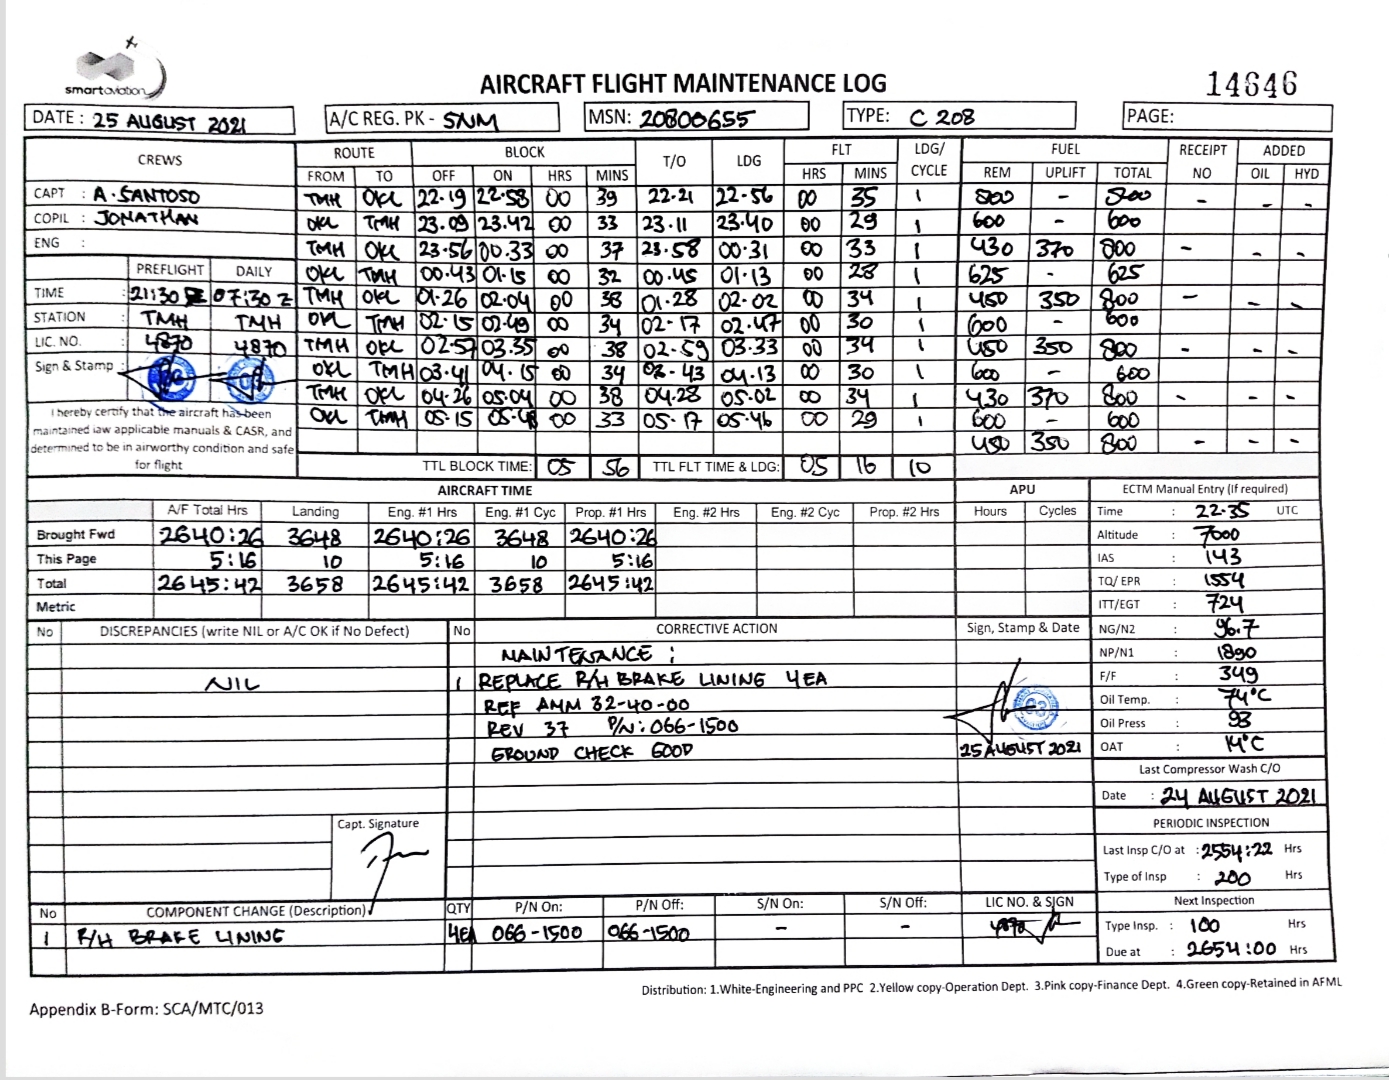 smartaviation
AIRCRAFT FLIGHT MAINTENANCE LOG
14646
DATE : 25 AUGUST 2021 A/C REG. PK - SNM MSN: 20800655 TYPE: C 208 PAGE:
CREWS ROUTE BLOCK T/O LDG FLT LDG/ CYCLE FUEL RECEIPT NO ADDED
FROM TO OFF ON HRS MINS HRS MINS REM UPLIFT TOTAL OIL HYD
CAPT : A. SANTOSO TMH OKL 22.19 22.58 00 39 22.21 22.56 00 35 1 800 - 800 - - -
COPIL : JONATHAN OKL TMH 23.09 23.42 00 33 23.11 23.40 00 29 1 600 - 600
ENG : TMH OKL 23.56 00.33 00 37 23.58 00.31 00 33 1 430 370 800 - - -
PREFLIGHT DAILY OKL TMH 00.43 01.15 00 32 00.45 01.13 00 28 1 625 - 625
TIME : 21:30 Z 07:30 Z TMH OKL 01.26 02.04 00 38 01.28 02.02 00 34 1 450 350 800 - - -
STATION : TMH TMH OKL TMH 02.15 02.49 00 34 02.17 02.47 00 30 1 600 - 600
LIC. NO. : 4870 4870 TMH OKL 02.57 03.35 00 38 02.59 03.33 00 34 1 450 350 800 - - -
Sign & Stamp : OKL TMH 03.41 04.15 00 34 03.43 04.13 00 30 1 600 - 600
TMH OKL 04.26 05.04 00 38 04.28 05.02 00 34 1 430 370 800 - - -
OKL TMH 05.15 05.48 00 33 05.17 05.46 00 29 1 600 - 600
450 350 800 - - -
I hereby certify that the aircraft has been
maintained iaw applicable manuals & CASR, and
determined to be in airworthy condition and safe
for flight
TTL BLOCK TIME: 05 56 TTL FLT TIME & LDG: 05 16 10
AIRCRAFT TIME APU ECTM Manual Entry (If required)
A/F Total Hrs Landing Eng. #1 Hrs Eng. #1 Cyc Prop. #1 Hrs Eng. #2 Hrs Eng. #2 Cyc Prop. #2 Hrs Hours Cycles Time : 22.35 UTC
Brought Fwd 2640:26 3648 2640:26 3648 2640:26 Altitude : 7000
This Page 5:16 10 5:16 10 5:16 IAS : 143
Total 2645:42 3658 2645:42 3658 2645:42 TQ/ EPR : 1554
Metric ITT/EGT : 724
No DISCREPANCIES (write NIL or A/C OK if No Defect) No CORRECTIVE ACTION Sign, Stamp & Date NG/N2 : 96.7
MAINTENANCE : NP/N1 : 1890
NIL 1 REPLACE R/H BRAKE LINING 4EA F/F : 349
REF AMM 32-40-00 Oil Temp. : 74°C
REV 37 P/N: 066-1500 Oil Press : 93
GROUND CHECK GOOD 25 AUGUST 2021 OAT : 14°C
Last Compressor Wash C/O
Date : 24 AUGUST 2021
Capt. Signature PERIODIC INSPECTION
Last Insp C/O at : 2554:22 Hrs
Type of Insp : 200 Hrs
No COMPONENT CHANGE (Description) QTY P/N On: P/N Off: S/N On: S/N Off: LIC NO. & SIGN Next Inspection
1 R/H BRAKE LINING 4EA 066-1500 066-1500 - - 4870 Type Insp. : 100 Hrs
Due at : 2654:00 Hrs
Distribution: 1.White-Engineering and PPC 2.Yellow copy-Operation Dept. 3.Pink copy-Finance Dept. 4.Green copy-Retained in AFML
Appendix B-Form: SCA/MTC/013